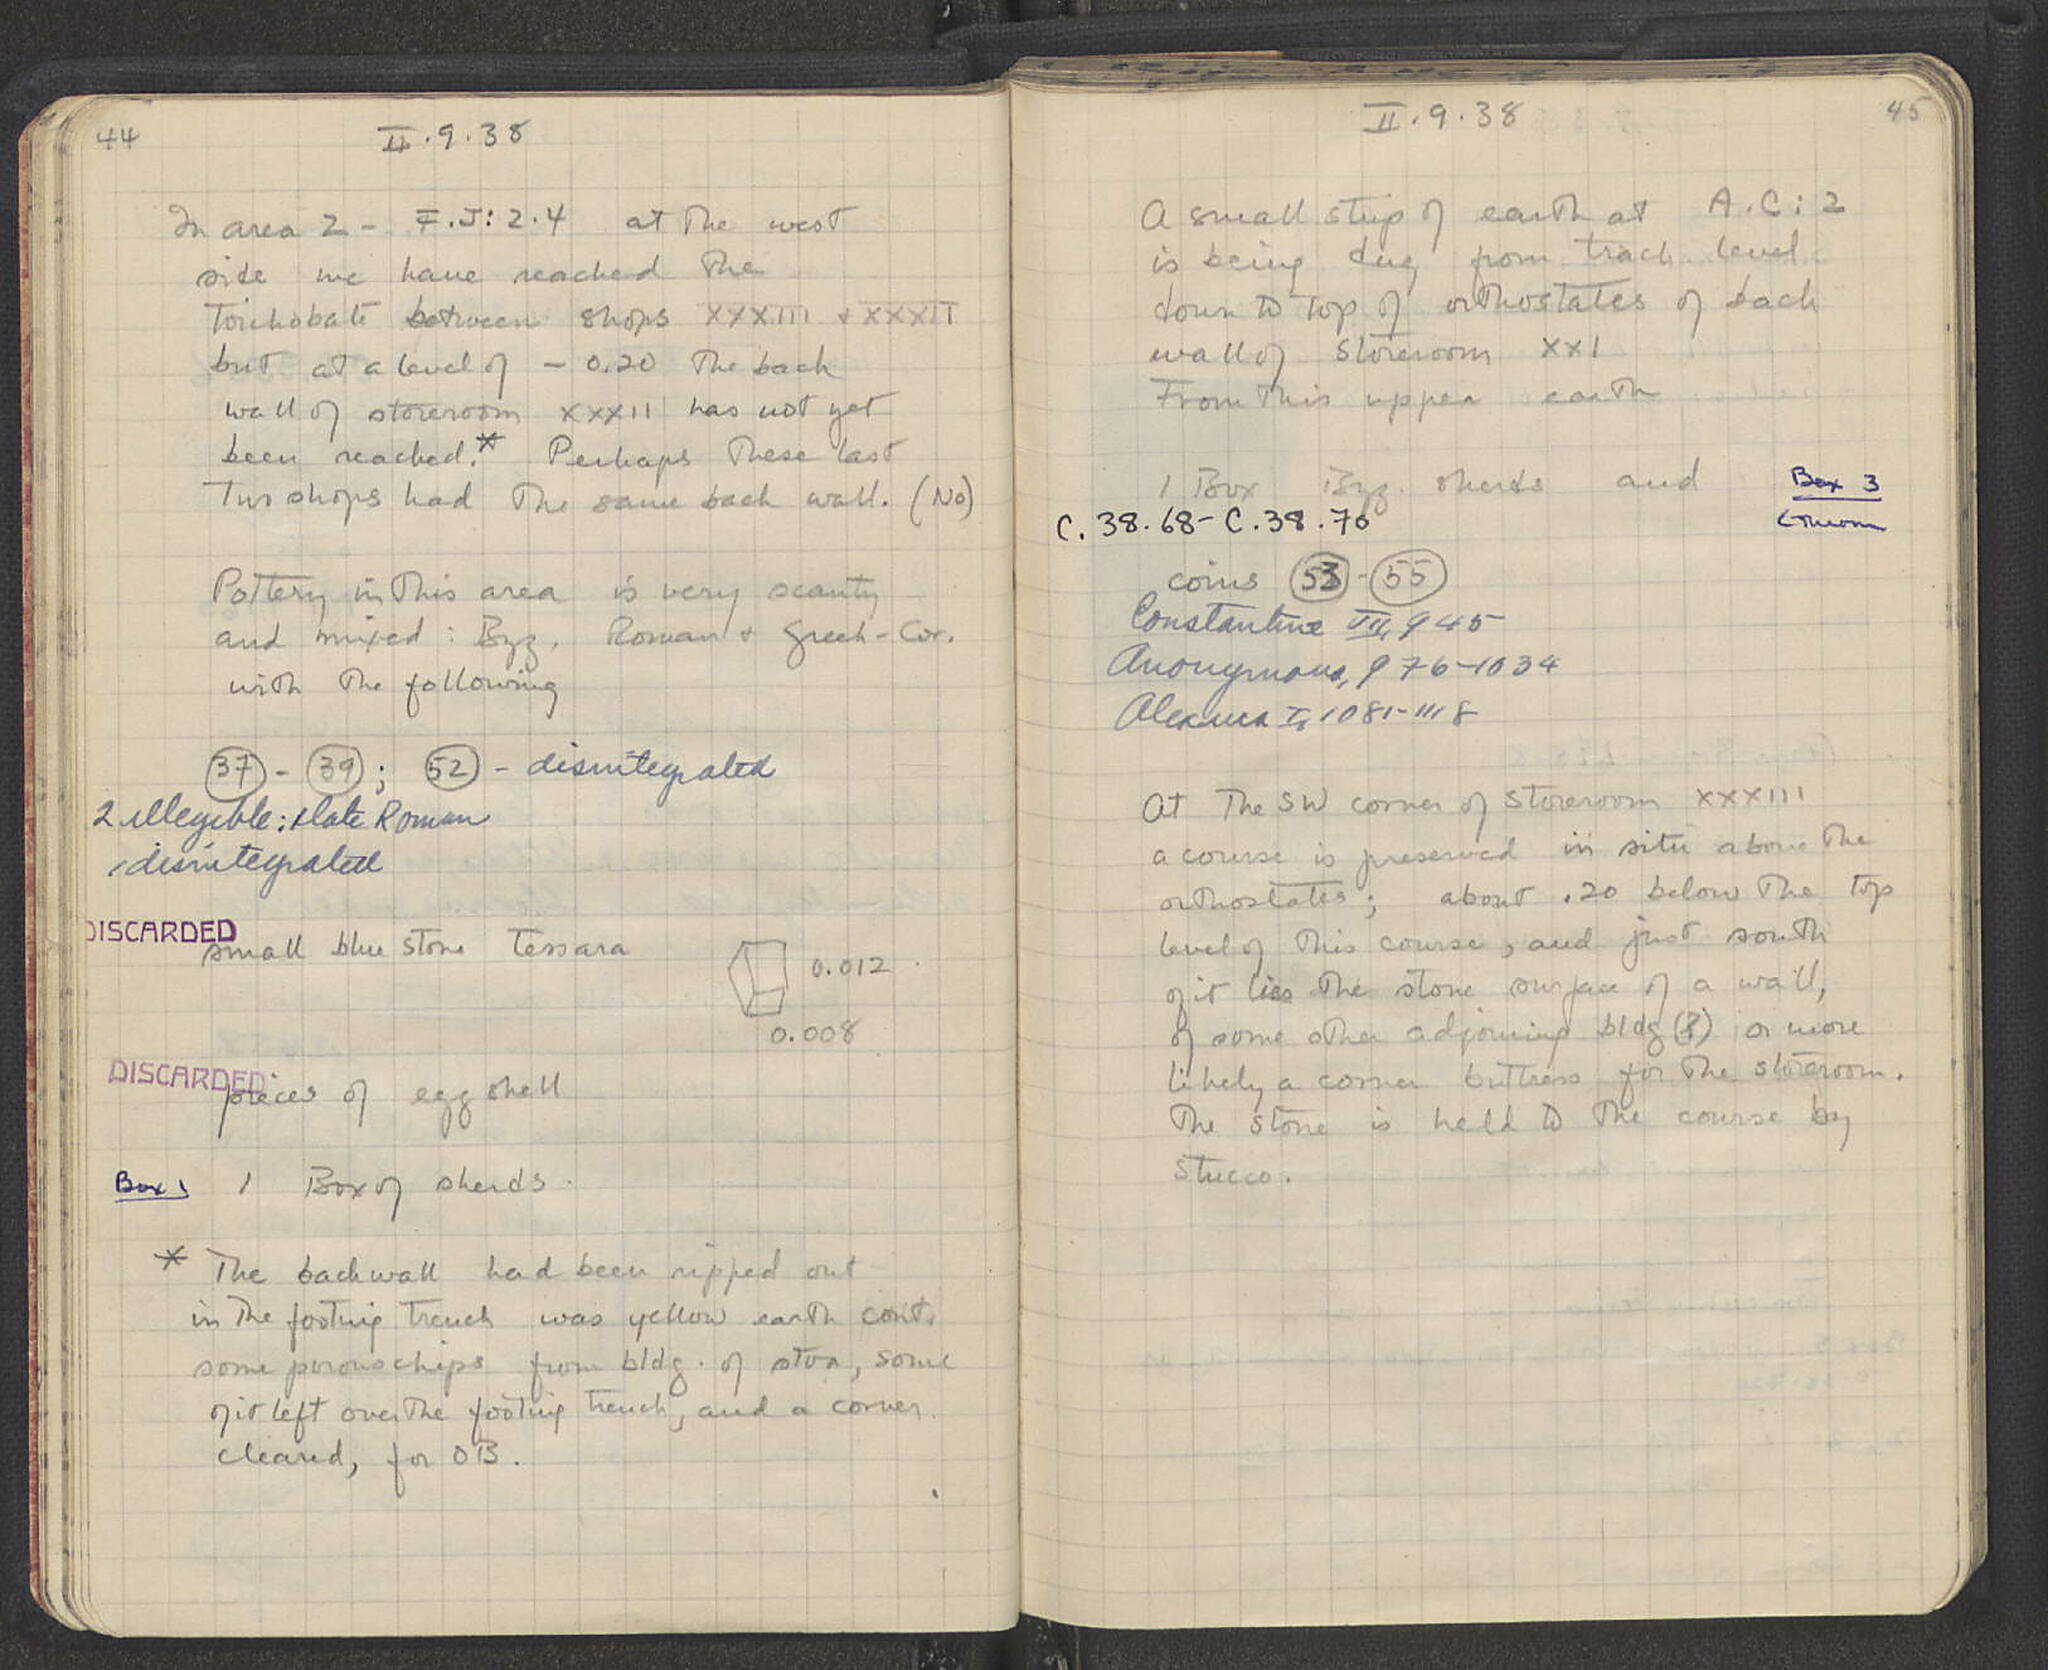 44
II.9.38
In area 2 - F.J:2.4 at the west
side we have reached the
Toichobate between shops XXXIII + XXXII
but at a level of - 0.20 the back
wall of storeroom XXXII has not yet
been reached.* Perhaps these last
two shops had the same back wall. (No)
Pottery in this area is very scanty
and mixed: Byz, Roman + Greek-Cor.
with the following
37 - 39; 52 - disintegrated
2 illegible: 1 late Roman
1 disintegrated
DISCARDED
small blue stone Tessara
0.012
0.008
DISCARDED
pieces of egg shell
Box 1 1 Box of sherds.
* The back wall had been ripped out
in the footing trench was yellow earth cont.
some poros chips from bldg. of stoa, some
of it left over the footing trench, and a corner
cleared, for OB.
II.9.38
45
A small strip of earth at A.C:2
is being dug from track level
down to top of orthostates of back
wall of storeroom XXI
From this upper earth
1 Box Byz. sherds and Box 3
C.38.68 - C.38.70
coins 53 - 55
Constantine VII, 945
Anonymous, 976-1034
Alexius I, 1081-1118
At the SW corner of storeroom XXXIII
a course is preserved in situ above the
orthostates; about .20 below the top
level of this course, and just south
of it lies the stone surface of a wall,
of some other adjoining bldg (?) or more
likely a corner buttress for the storeroom.
The stone is held to the course by
stucco.